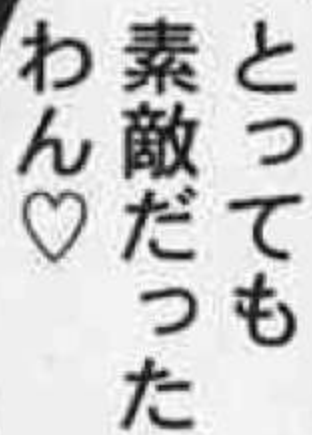 とっても
素敵だった
わん♡